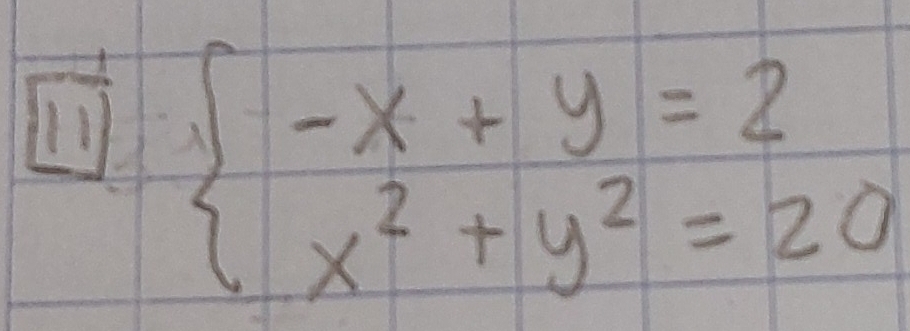 11 { -x + y = 2
x² + y² = 20